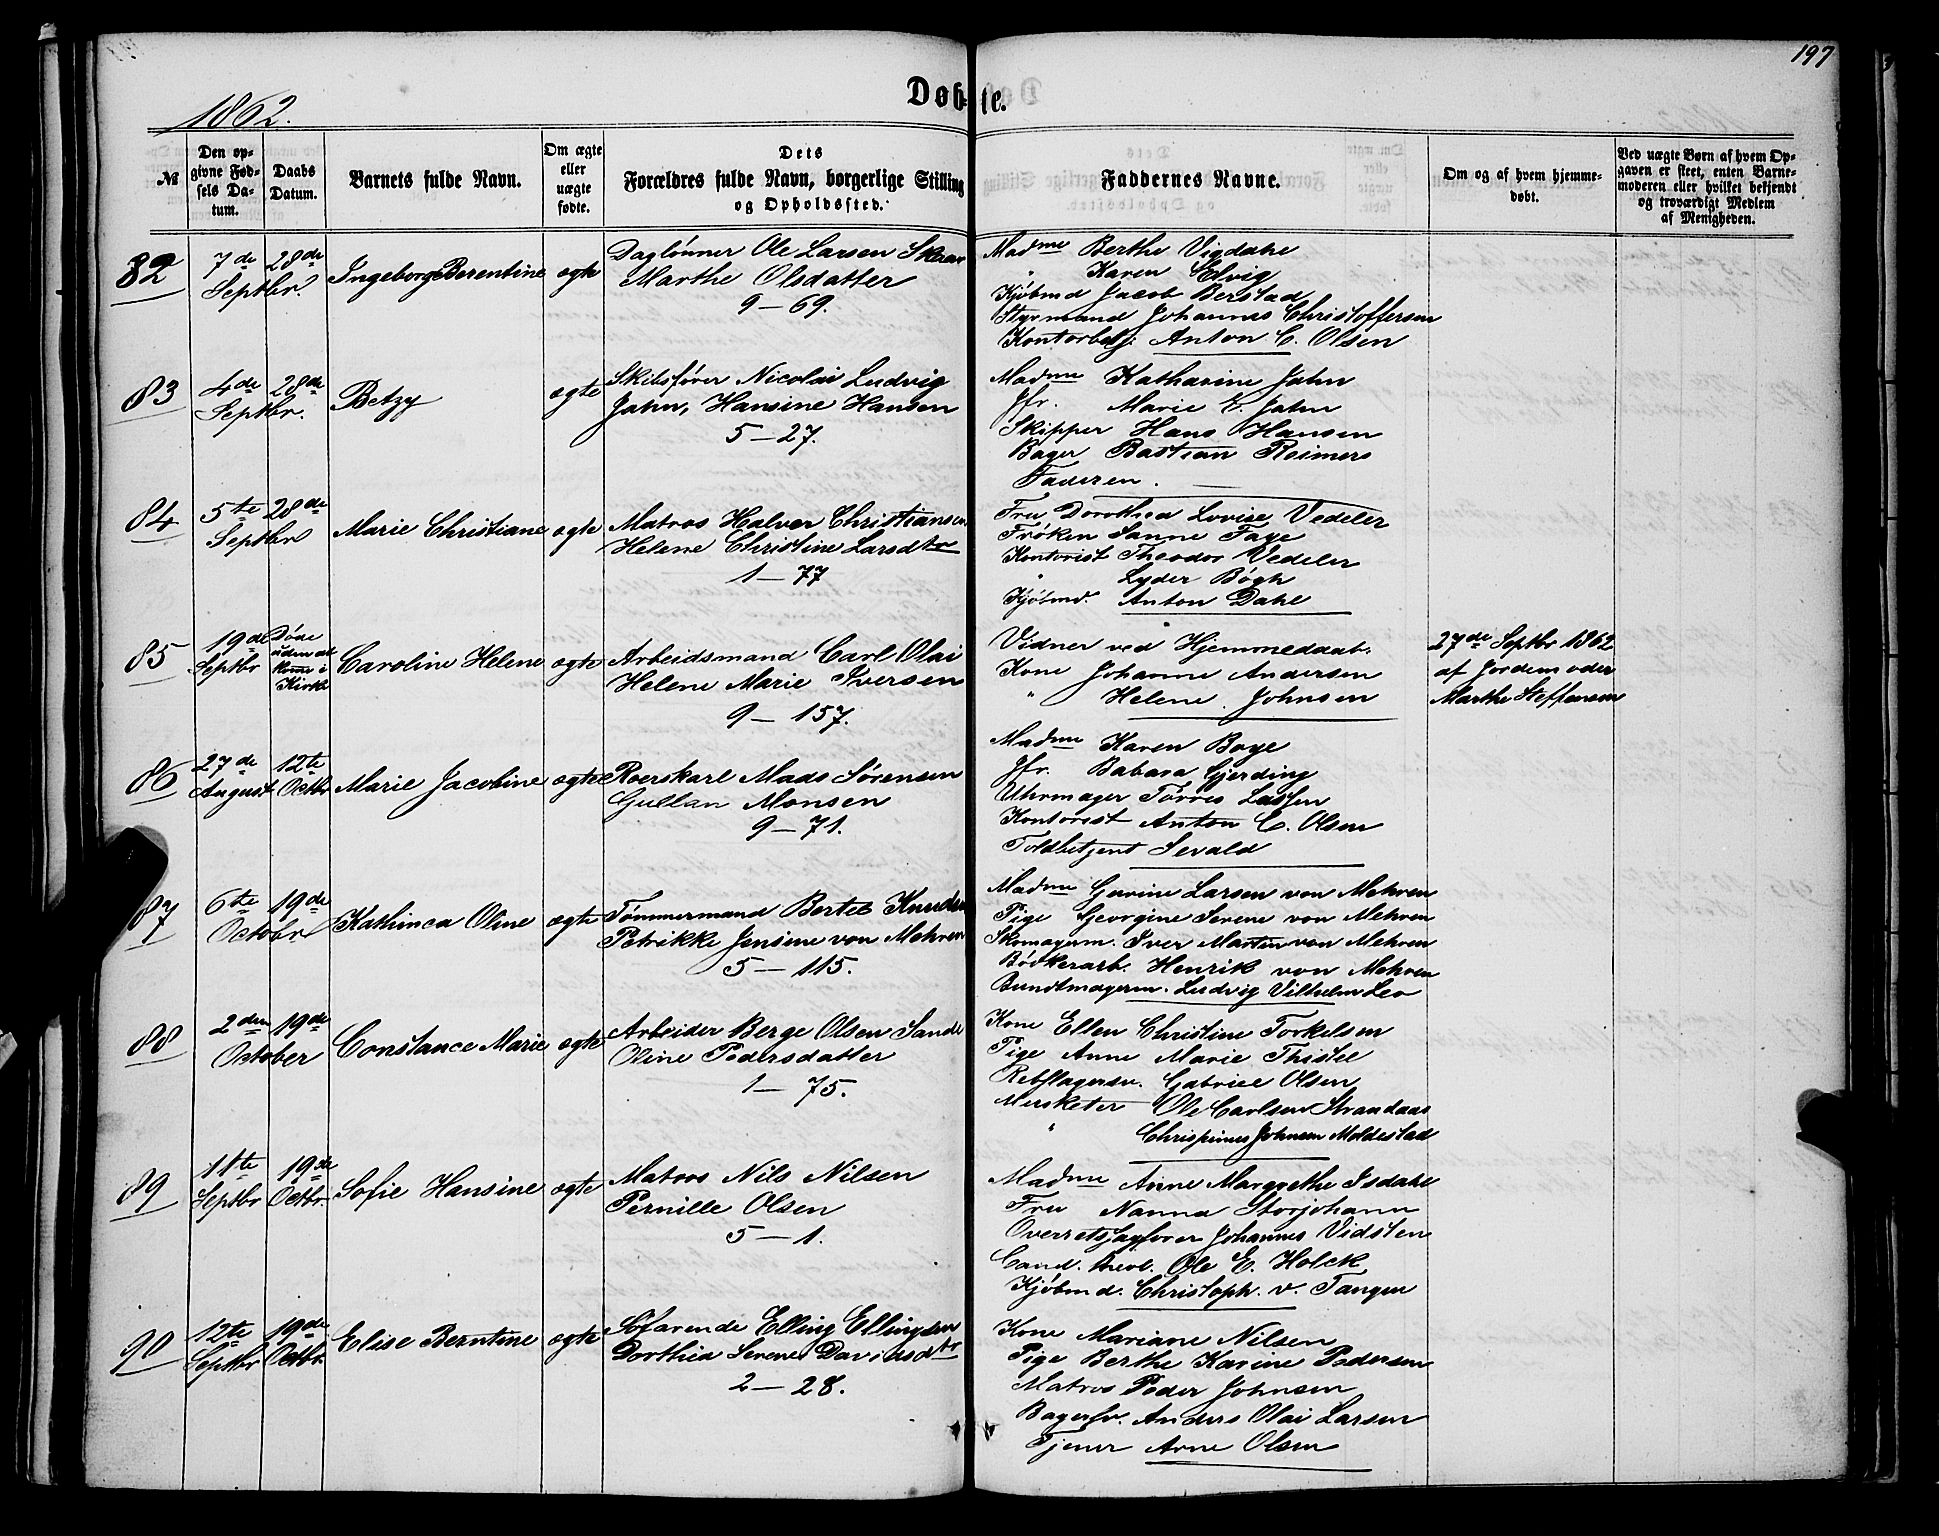 197
Døbte.
1862.
№
Den opgivne Fødsels Datum.
Daabs Datum.
Barnets fulde Navn.
Om ægte eller uægte fødte.
Dets Forældres fulde Navn, borgerlige Stilling og Opholdssted.
Faddernes Navne.
Om og af hvem hjemmedøbt.
Ved uægte Børn af hvem Opgaven er skeet, enten Barnemoderen eller hvilket bekjendt og troværdigt Medlem af Menigheden.
82
7de Septbr.
28de
Ingeborg Berentine
ægte
Daglønner Ole Larsen Skaar
Marthe Olsdatter
9 – 69.
Madme Berthe Vigdahl
" Karen Elvig
Kjøbmd Jacob Berstad
Styrmand Johannes Christoffersen
Kontorbetj. Anton C. Olsen
83
4de Septbr.
28de
Betzy
ægte
Skibsfører Nicolai Ludvig
Jahn, Hansine Hansen
5 – 27.
Madme Katharine Jahn
Jfr. Marie E. Jahn
Skipper Hans Hansen
Bager Bastian Reimers
Faderen.
84
5te Septbr
28de
Marie Christiane
ægte
Matros Halver Christiansen
Helene Christine Larsdtr
1 – 77
Fru Dorothea Lovise Vedeler
Frøken Sanne Faye
Kontorist Theodor Vedeler
" Lyder Bøgh
Kjøbmd. Anton Dahl
85
19de Septbr
Døde uden at komme i Kirke
Caroline Helene
ægte
Arbeidsmand Carl Olai
Helene Marie Iversen
9 – 157.
Vidner ved Hjemmedaab.
Kone Johanne Andersen
" Helene Johnsen
27de Septbr 1862
af Jordemoder
Marthe Steffensen
86
27de August
12te Octbr
Marie Jacobine
ægte
Roerskarl Mads Sørensen
Gullan Monsen
9 – 71.
Madme Karen Boye
Jfr. Babara Gjerding
Uhrmager Tørres Lassen
Kontorist Anton C. Olsen
Toldbetjent Sevald
87
6te Octobr
19de
Kathinca Oline
ægte
Tømmermand Bertel Knudsen
Petrikke Jensine von Mehren
5 – 115.
Madme Gurine Larsen von Mehren
Pige Georgine Serene von Mehren
Skomagerm. Iver Martin von Mehren
Bødkerarb. Henrik von Mehren
Bundtmagerm. Ludvig Vilhelm Leo
88
2den October
19de
Constance Marie
ægte
Arbeider Berge Olsen Sande
Oline Pedersdatter
1 – 75.
Kone Ellen Christine Torkelsen
Pige Anne Marie Thistel
Rebslagersv. Gabriel Olsen
Musketer Ole Carlsen Strandaas
" Chrispinus Johnsen Moldestad
89
11te Septbr
19de Octbr.
Sofie Hansine
ægte
Matros Nils Nilsen
Pernille Olsen
5 – 1.
Madme Anne Margrethe Isdahl
Fru Nanna Storjohann
Overretssagfører Johannes Vidsten
Cand. theol. Ole E. Holck
Kjøbmd. Christoph. v. Tangen
90
12te Septbr
19de Octbr.
Elise Berntine
ægte
Søfarende Elling Ellingsen
Dorthea Serene Davidsdtr
2 – 28.
Kone Mariane Nilsen
Pige Berthe Karine Pedersen
Matros Peder Johnsen
Bagersv. Anders Olai Larsen
Tjener Arne Olsen